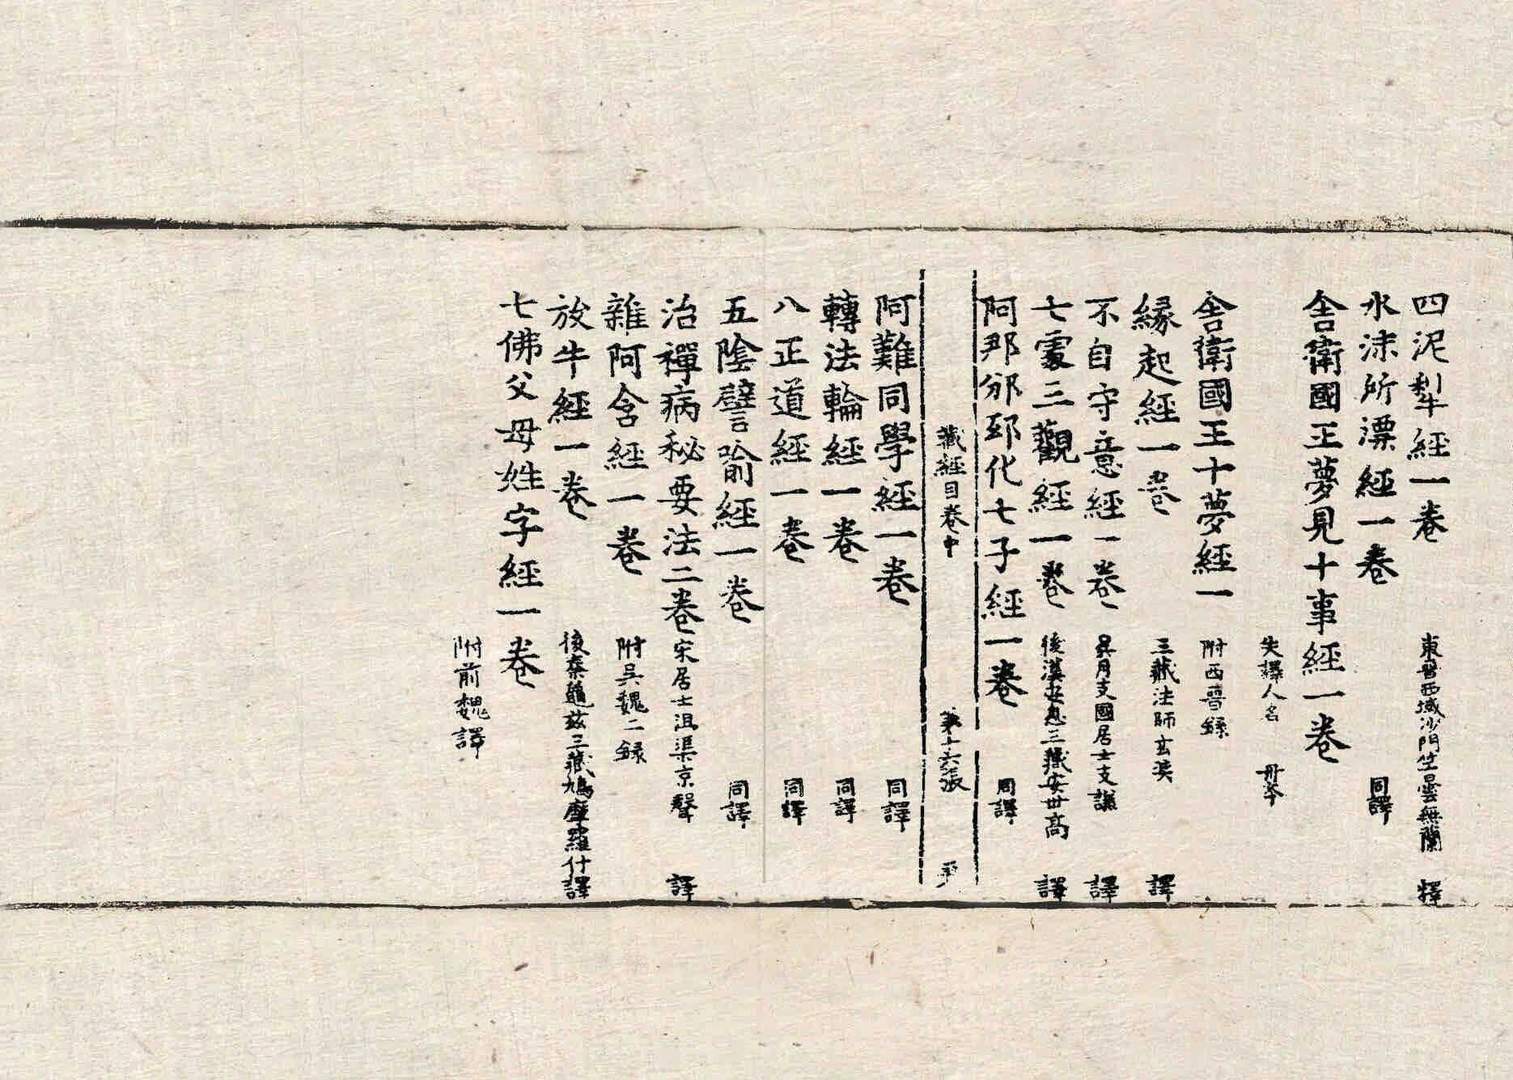 四泥犁經一卷 東晉西域沙門竺曇無蘭 譯
水沫所漂經一卷 同譯
舍衛國王夢見十事經一卷
失譯人名
舍衛國王十夢經一 附西晉錄
緣起經一卷 三藏法師玄奘 譯
不自守意經一卷 吳月支國居士支謙 譯
七處三觀經一卷 後漢安息三藏安世高 譯
阿那邠邸化七子經一卷 同譯
藏經目卷中 第十六張
阿難同學經一卷 同譯
轉法輪經一卷 同譯
八正道經一卷 同譯
五陰譬喻經一卷 同譯
治禪病秘要法二卷 宋居士沮渠京聲 譯
雜阿含經一卷 附吳魏二錄
放牛經一卷 後秦龜茲三藏鳩摩羅什譯
七佛父母姓字經一卷
附前魏譯